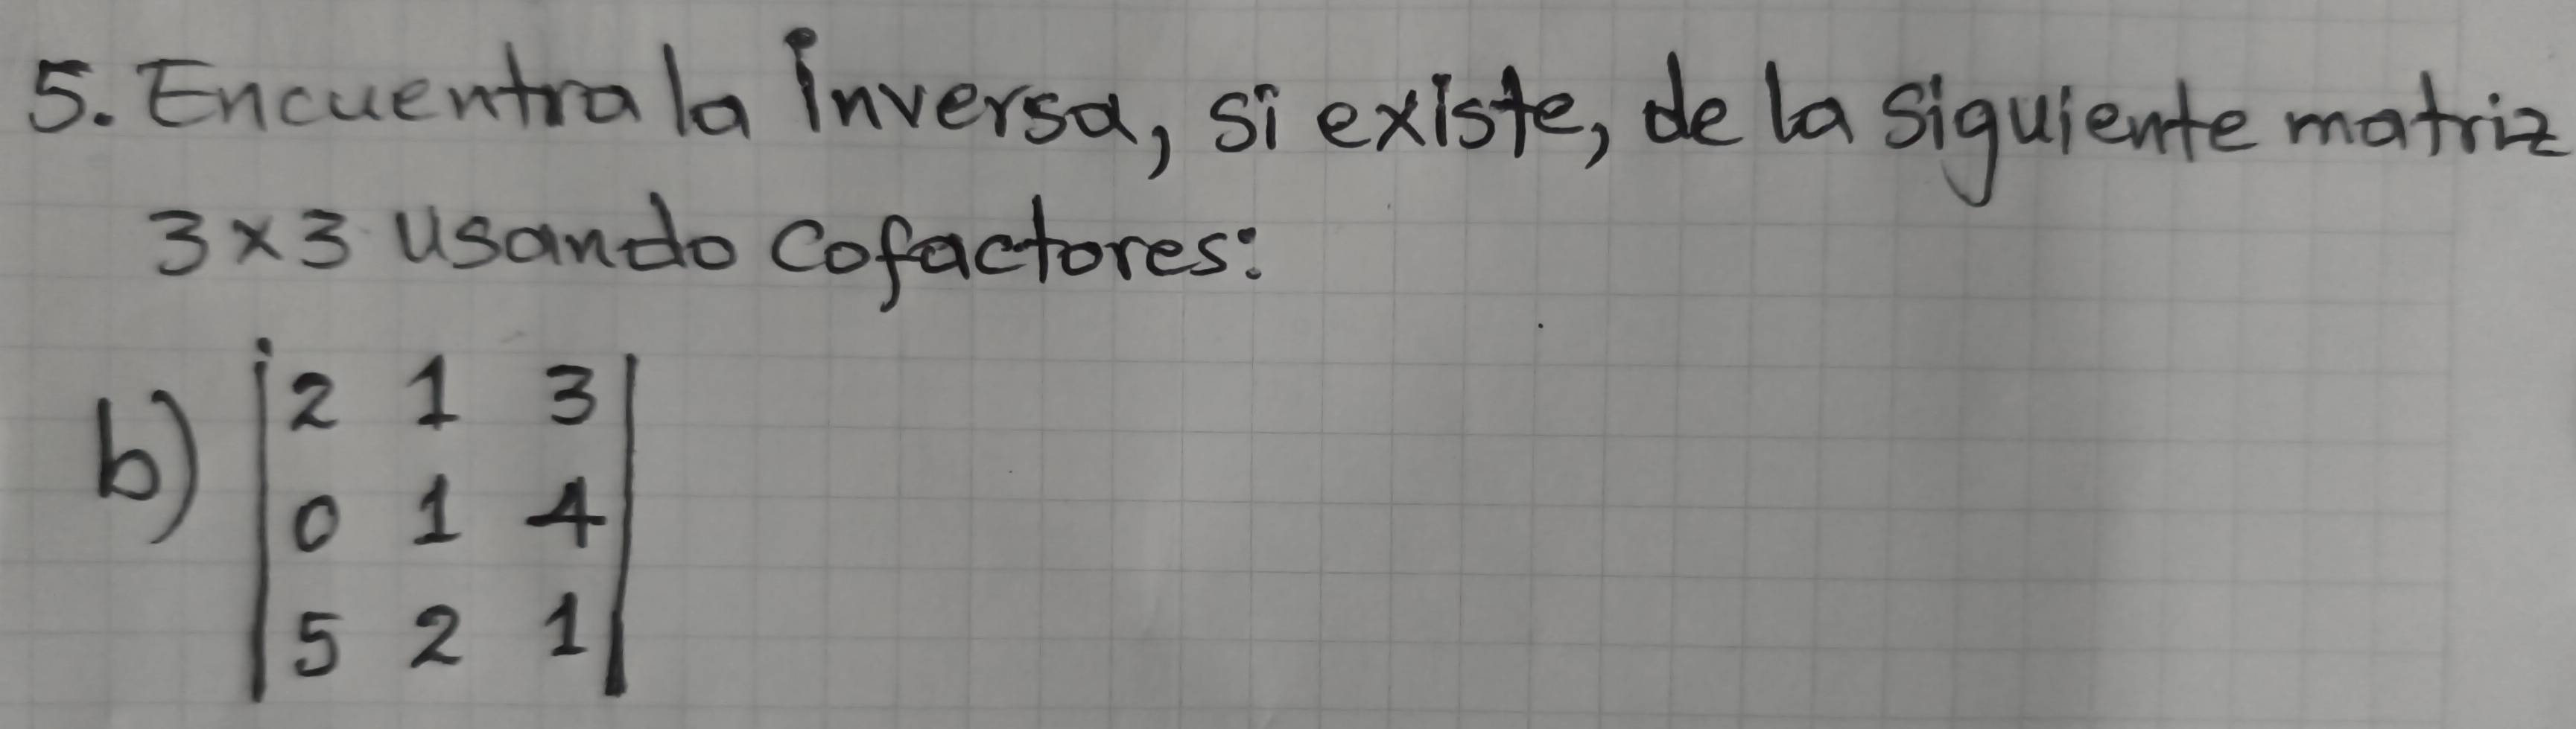 5. Encuentra la inversa, si existe, de la siguiente matriz
3×3 usando cofactores:
b) | 2 1 3 |
| 0 1 4 |
| 5 2 1 |